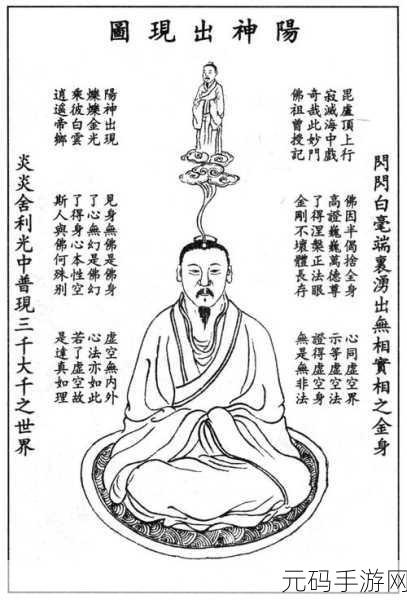 陽神出現圖
閃閃白毫端裏湧出無相實相之金身
毘盧頂上行
寂滅海中戲
奇哉此妙門
佛祖曾授記
佛因半偈捨全身
高證巍巍萬德尊
了得涅槃正法眼
金剛不壞體長存
心同虛空界
示等虛空法
證得虛空身
無是無非法
陽神出現
爍爍金光
乘彼白雲
逍遙帝鄉
見身無佛是佛身
了心無幻是佛幻
了得身心本性空
斯人與佛何殊别
虛空無內外
心法亦如此
若了虛空故
是達真如理
炎炎舍利光中普現三千大千之世界
元码手游网